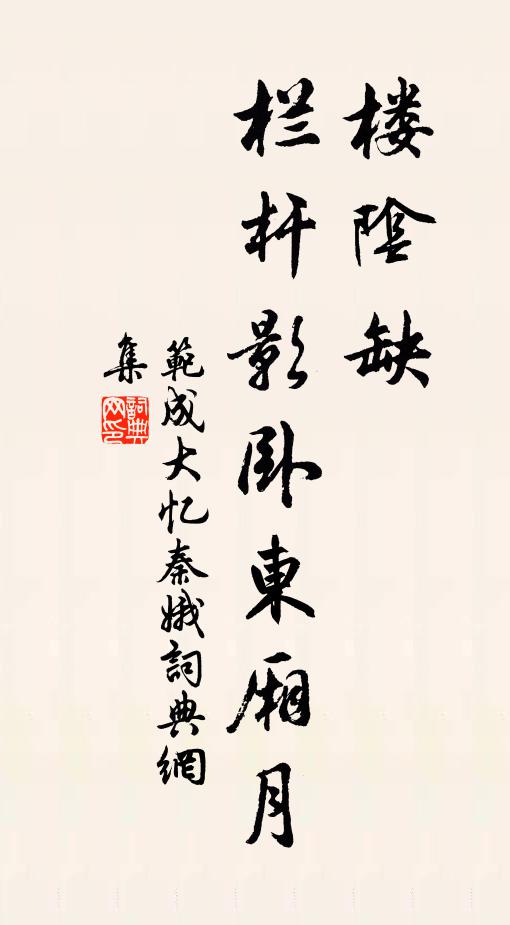 楼陰缺
栏杆影卧東厢月
範成大忆秦娥詞典網
集
詞典网印